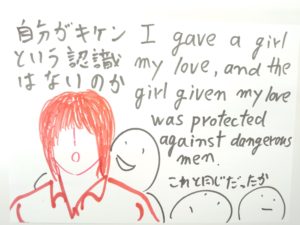 自分がキケン
という認識
はないのか
I gave a girl
my love, and the
girl given my love
was protected
against dangerous
men.
これと同じだったか